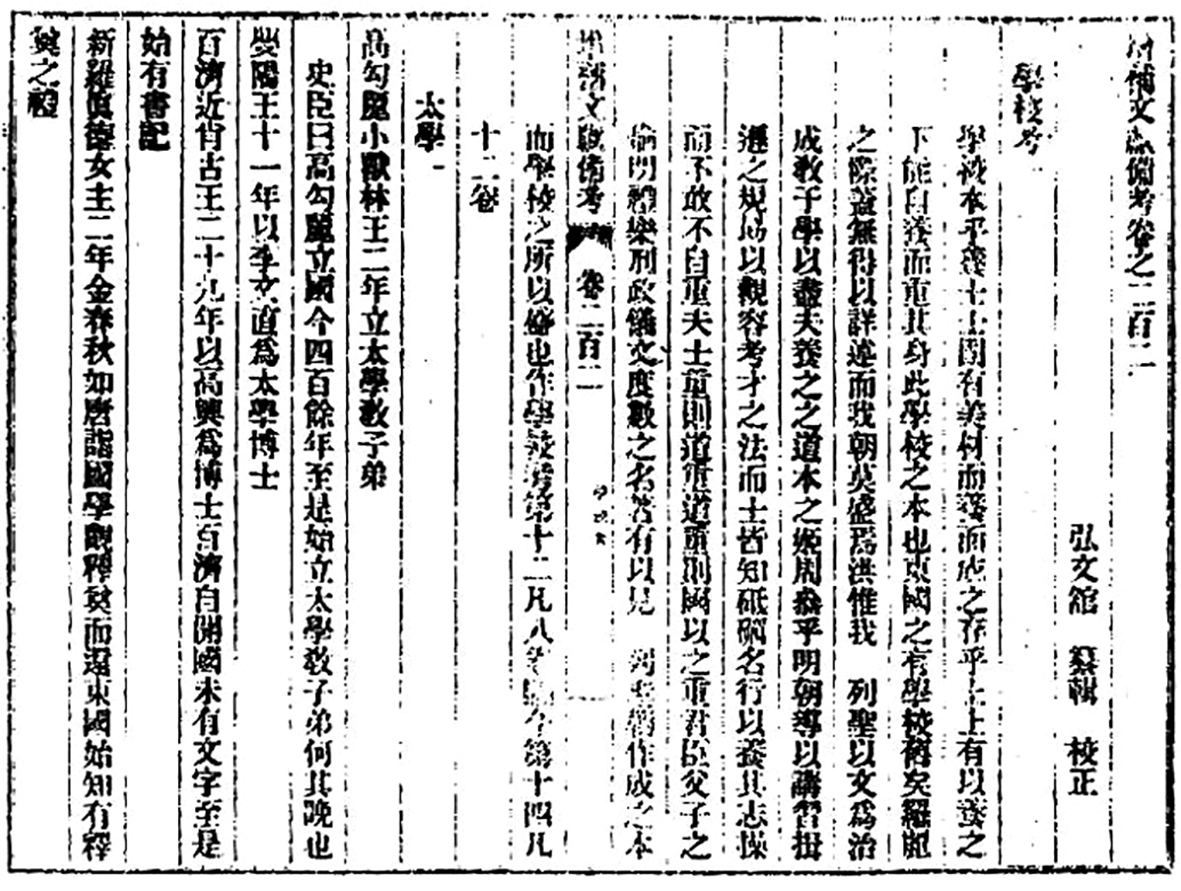 增補文獻備考卷之二百二
弘文館 纂輯 校正
學校考一
學校本乎養士士固有美材而養而成之存乎上上有以養之
下能自養而重其身此學校之本也東國之有學校舊矣羅麗
之際蓋無得以詳述而我朝莫盛焉洪惟我 列聖以文爲治
成敎于學以盡夫養之之道本之姬周叅乎明朝導以講習揖
遜之規協以觀容考才之法而士皆知砥礪名行以養其志操
而不敢不自重夫士重則道重道重則國以之重君臣父子之
倫明禮樂刑政儀文度數之名皆有以見 列聖 作成之本
增補文獻備考 卷二百二
而學校之所以盛也作學校考第十二凡八 今第十四凡
十二卷
太學一
高勾麗小獸林王二年立太學敎子弟
史臣曰高勾麗立國今四百餘年至是始立太學敎子弟何其晚也
嬰陽王十一年以李文眞爲太學博士
百濟近肖古王二十九年以高興爲博士百濟自開國未有文字至是
始有書記
新羅眞德女主二年金春秋如唐詣國學觀釋奠而還東國始知有釋
奠之禮